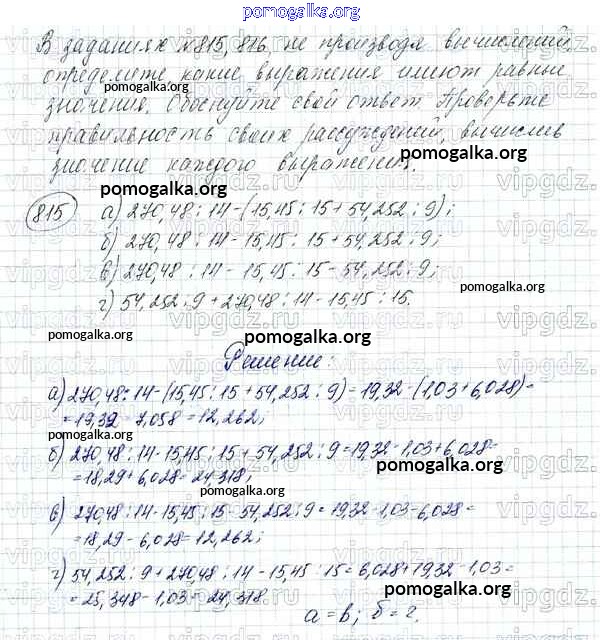 pomogalka.org
В заданиях № 815, 816, не производя вычислений,
определите, какие выражения имеют равные
значения. Обоснуйте свой ответ. Проверьте
правильность своих рассуждений, вычислив
значение каждого выражения.
pomogalka.org
pomogalka.org
815 а) 270,48 : 14 - (15,45 : 15 + 54,252 : 9);
б) 270,48 : 14 - 15,45 : 15 + 54,252 : 9;
pomogalka.org
в) 270,48 : 14 - 15,45 : 15 - 54,252 : 9;
г) 54,252 : 9 + 270,48 : 14 - 15,45 : 15.
pomogalka.org
pomogalka.org
pomogalka.org
Решение:
а) 270,48 : 14 - (15,45 : 15 + 54,252 : 9) = 19,32 - (1,03 + 6,028) =
= 19,32 - 7,058 = 12,262;
pomogalka.org
б) 270,48 : 14 - 15,45 : 15 + 54,252 : 9 = 19,32 - 1,03 + 6,028 =
pomogalka.org
= 18,29 + 6,028 = 24,318;
pomogalka.org
в) 270,48 : 14 - 15,45 : 15 - 54,252 : 9 = 19,32 - 1,03 - 6,028 =
= 18,29 - 6,028 = 12,262;
г) 54,252 : 9 + 270,48 : 14 - 15,45 : 15 = 6,028 + 19,32 - 1,03 =
pomogalka.org
= 25,348 - 1,03 = 24,318.
а = в; б = г.
pomogalka.org